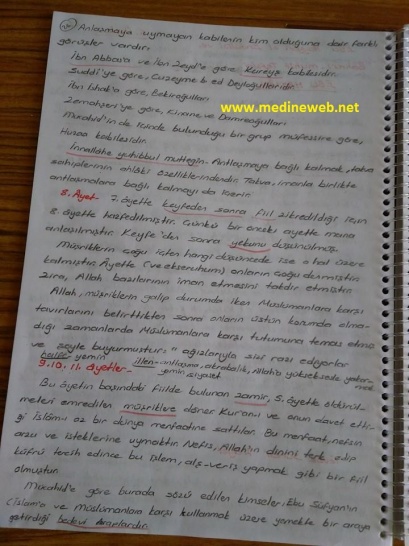 Anlaşmaya uymayan kabilenin kim olduğuna dair farklı
görüşler vardır.
İbn Abbas'a ve İbni Zeyd'e göre Kureyş kabilesidir.
Suddi'ye göre, Cuzeyme b. ed Deyloğullarıdır.
İbn İshak'a göre, Bekiroğulları
www.medineweb.net
Zemahşeri'ye göre, Kinane ve Damreoğulları
Mücahid'in de içinde bulunduğu bir grup müfessire göre,
Huzaa kabilesidir.
İnnallahe yuhibbul muttegin- Antlaşmaya bağlı kalmak, takva
sahiplerinin ahlaki özelliklerindendir. Takva, imanla birlikte
antlaşmalara bağlı kalmayı da içerir.
8. Ayet- 7. ayette keyfeden sonra fiil zikredildiği için
8. ayette hazfedilmiştir. Çünkü bir önceki ayette mana
anlaşılmıştır. Keyfe'den sonra yekunu düşünülmüş.
Müşriklerin çoğu içten hangi düşüncede ise o hal üzere
kalmıştır. Ayette (ve ekseruhum) onların çoğu denmiştir.
Zira, Allah bazılarının iman etmesini takdir etmiştir.
Allah, müşriklerin galip durumda iken Müslümanlara karşı
tavırlarını belirttikten sonra onların üstün konumda olma-
dığı zamanlarda Müslümanlara karşı tutumuna temas etmiş
ve şöyle buyurmuştur: "ağızlarıyla sizi razı ediyorlar
yemin
illen- antlaşma, akrabalık, Allah'a yükseksesle yakar-
mak
9.10. 11. Ayetler- yemin
Bu ayetin başındaki fiilde bulunan zamir, 5. ayette öldürül-
meleri emredilen müşriklere döner. Kur'anı ve onun davet etti-
ği İslâm'ı az bir dünya menfaatine sattılar. Bu menfaat, nefsin
arzu ve isteklerine uymaktır. Nefis, Allah'ın dinini terk edip
küfrü tercih edince bu işlem, alış-veriş yapmak gibi bir fiil
olmuştur.
Mücahid'e göre burada sözü edilen kimseler, Ebu Süfyan'ın
(İslam'a ve müslümanlara karşı kullanmak üzere yemekte bir araya
getirdiği bedevi Araplardır.